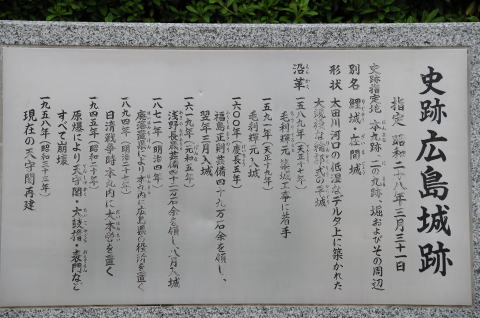 史跡広島城跡
指定 昭和二十八年三月三十一日
史跡指定地 本丸跡、二の丸跡、堀およびその周辺
別名 鯉城・在間城
形状 太田川河口の低湿なデルタ上に築かれた
大規模な輪郭式の平城
沿革 一五八九年(天正十七年)
毛利輝元 築城工事に着手
一五九一年(天正十九年)
毛利輝元入城
一六〇〇年(慶長五年)
福島正則芸備四十九万石余を領し、
翌年三月入城
一六一九年(元和五年)
浅野長晟芸備四十二万石余を領し、八月入城
一八七一年(明治四年)
廃藩置県により本丸内に広島県の役所を置く
一八九四年(明治二十七年)
日清戦争時本丸内に大本営を置く
一九四五年(昭和二十年)
原爆により天守閣・太鼓櫓・表門など
すべて崩壊
一九五八年(昭和三十三年)
現在の天守閣再建